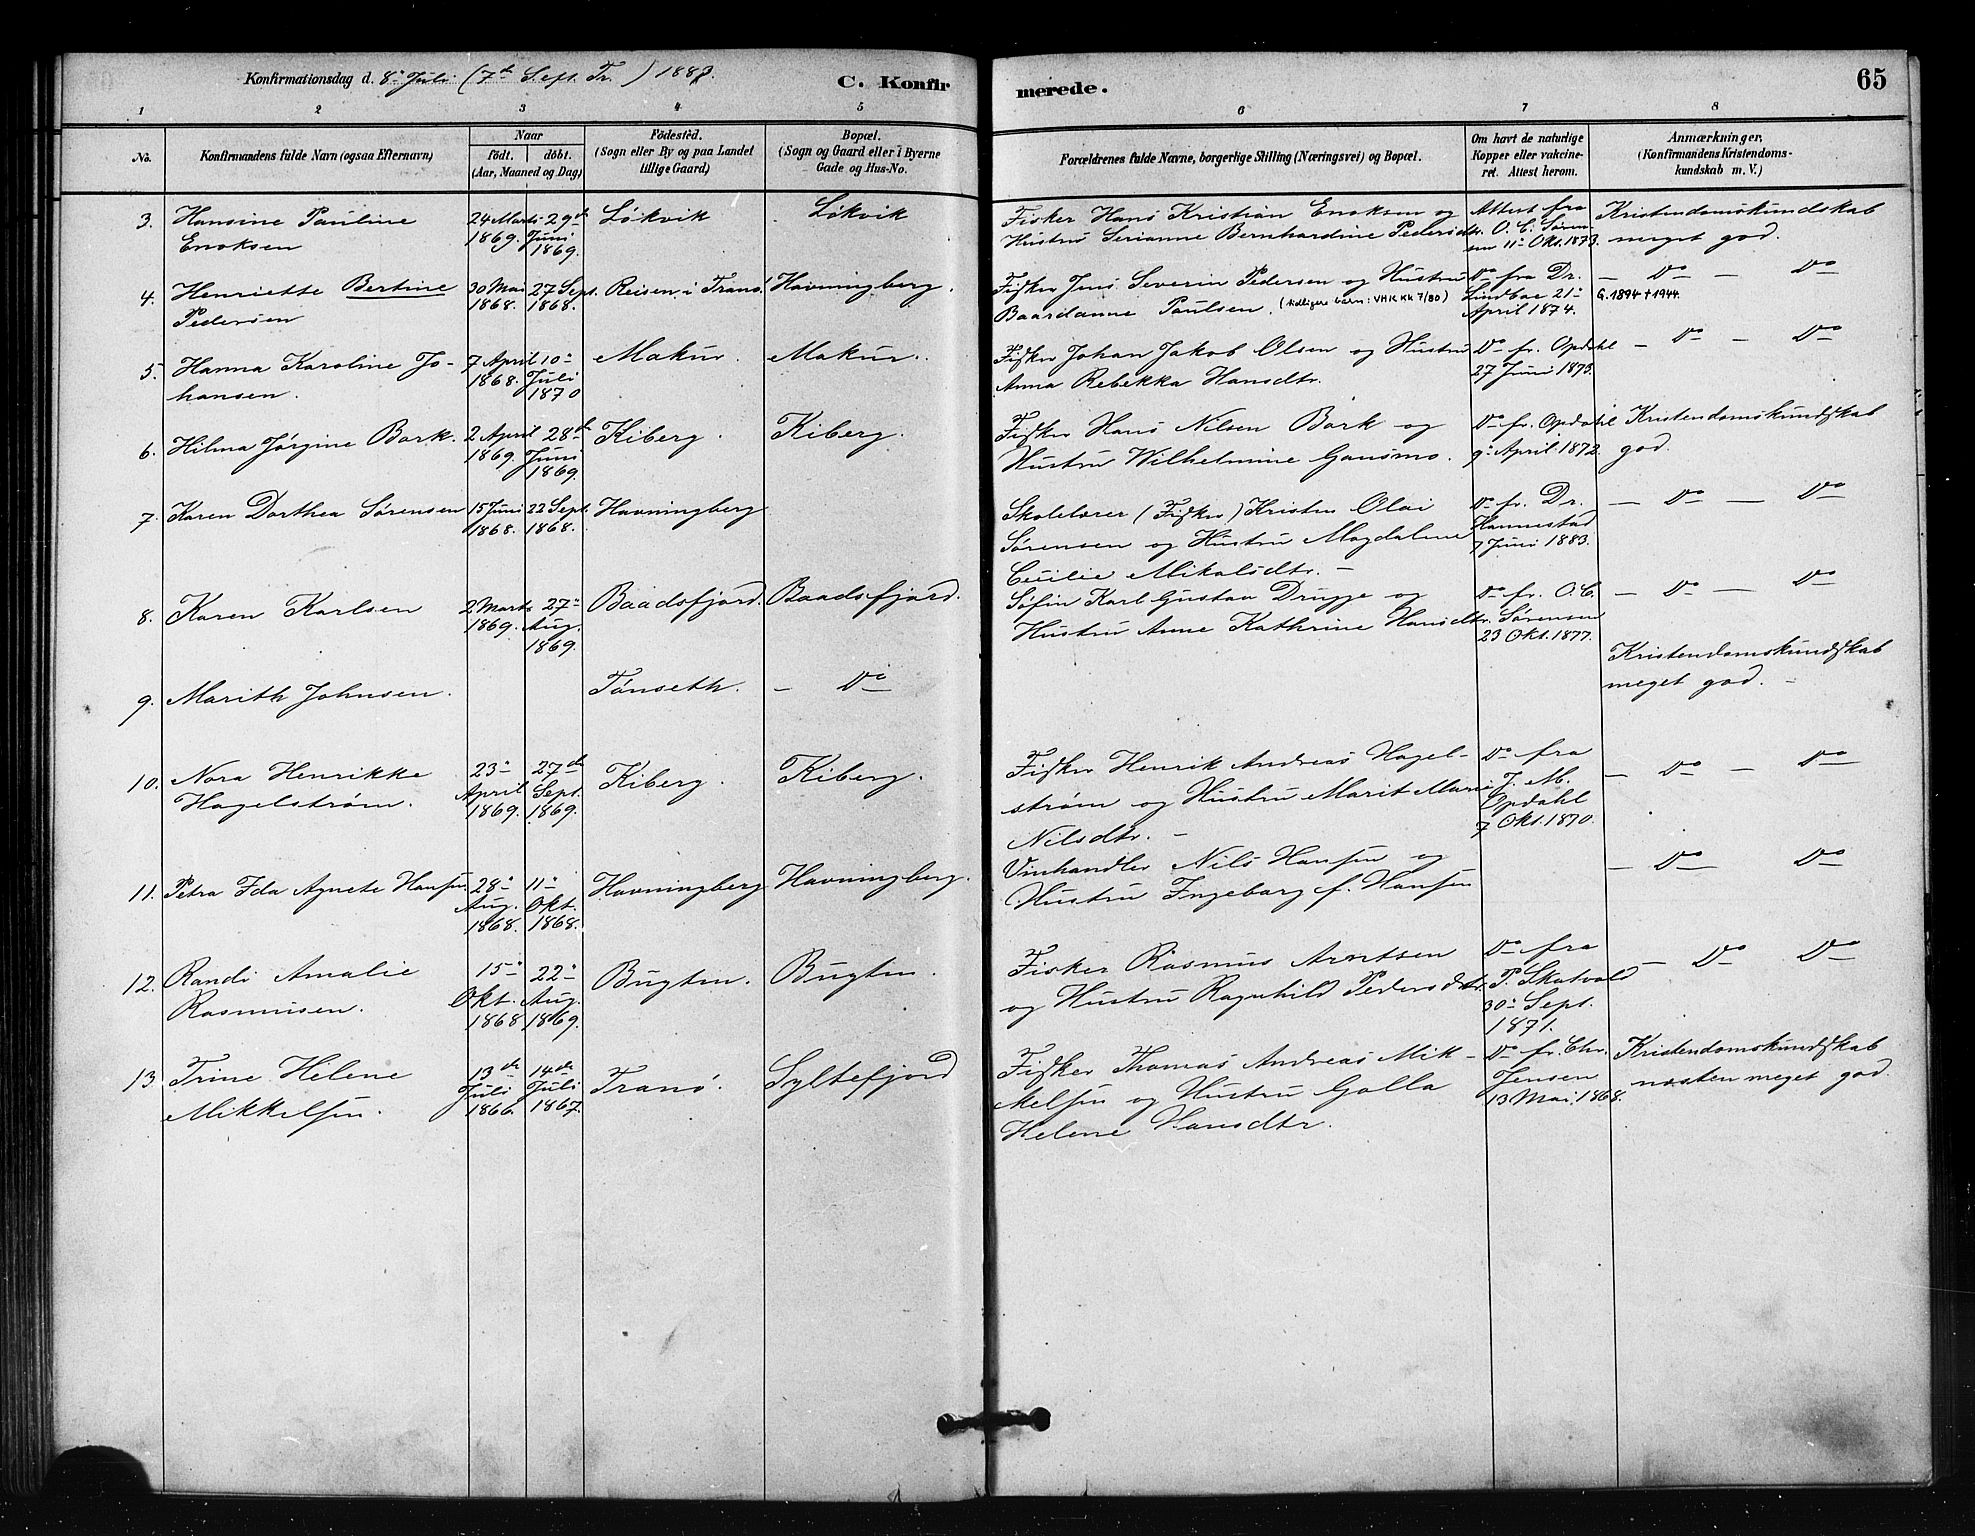 Konfirmationsdag d. 8de Juli (7de S. eft. Tr.) 1883.
C. Konfir
merede.
65
1 2 3 4 5 6 7 8
No.
Konfirmandens fulde Navn (ogsaa Efternavn)
Naar
födt. döbt.
(Aar, Maaned og Dag)
Födested.
(Sogn eller By og paa Landet
tillige Gaard)
Bopæl.
(Sogn og Gaard eller i Byerne
Gade og Hus-No.
Forældrenes fulde Navne, borgerlige Stilling (Næringsvei) og Bopæl.
Om havt de naturlige
Kopper eller vakcine-
ret. Attest herom.
Anmærkninger,
(Konfirmandens Kristendoms-
kundskab m. V.)
3. Hansine Pauline
Enoksen
24 Marts
1869.
29de
Juni
1869.
Løkvik
Løkvik
Fisker Hans Kristian Enoksen og
Hustru Serianne Bernhardine Pedersdtr.
Attest fra
O. C. Søren-
sen 11te Okt. 1873.
Kristendomskundskab
meget god.
4. Henriette Bertine
Pedersen
30 Mai
1868.
27 Sept.
1868.
Reisen i Tranø
Havningberg.
Fisker Jens Severin Pedersen og Hustru
Baardanne Paulsen. (tidligere barn: VHK KK 7/80)
Do fra Dr.
Lindboe 21de
April 1874.
— Do — Do
G. 1894 † 1944.
5. Hanna Karoline Jo-
hansen.
7 April
1868.
10de
Juli
1870
Makur.
Makur.
Fisker Johan Jakob Olsen og Hustru
Anna Rebekka Hansdtr.
Do fr. Opdahl
27 Juni 1873.
— Do — Do
6. Hilma Jørgine Bork.
2 April
1869.
28de
Juni
1869.
Kiberg.
Kiberg.
Fisker Hans Nilsen Bork og
Hustru Wilhelmine Gansmo.
Do fr. Opdahl
9de April 1872.
Kristendomskundskab
god.
7. Karen Dorthea Sørensen
15 Juni
1868.
22 Sept.
1868.
Havningberg
Skolelærer (Fisker) Kristen Olai
Sørensen og Hustru Magdalene
Cecilie Mikalsdtr. —
Do fr. Dr.
Hannestad
7 Juni 1883.
— Do — Do
8. Karen Karlsen
2 Marts
1869.
27de
Aug.
1869.
Baadsfjord.
Baadsfjord.
Søfin Karl Gustav Drugge og
Hustru Anne Kathrine Hansdtr.
Do fr. O. C.
Sørensen
23 Okt. 1877.
— Do — Do
9. Marith Johnsen.
Tønseth.
— Do
Kristendomskundskab
meget god. —
10. Nora Henrikke
Hagelstrøm.
23de
April
1869.
27de
Sept.
1869.
Kiberg.
Kiberg.
Fisker Henrik Andreas Hagel-
strøm og Hustru Marit Marie
Nilsdtr. —
Do fra
J. M.
Opdahl
7 Okt. 1870.
— Do — Do
11. Petra Ida Agnete Hansen
28de
Aug.
1868.
11te
Okt.
1868.
Havningberg
Havningberg.
Vinhandler Nils Hansen og
Hustru Ingeborg f. Hansen
— Do — Do
12. Randi Amalie
Rasmusen.
15de
Okt.
1868
22de
Aug.
1869.
Bugten.
Bugten.
Fisker Rasmus Arntsen
og Hustru Ragnhild Pedersdtr.
Do fra
P. Skatvold
30te Sept.
1871.
— Do — Do
13. Trine Helene
Mikkelsen.
13de
Juli
1866.
14de
Juli
1867.
Tranø.
Syltefjord
Fisker Thomas Andreas Mik-
kelsen og Hustru Golla
Helene Hansdtr.
Do fr. Chr.
Jensen
13 Mai 1868.
Kristendomskundskab
næsten meget god.